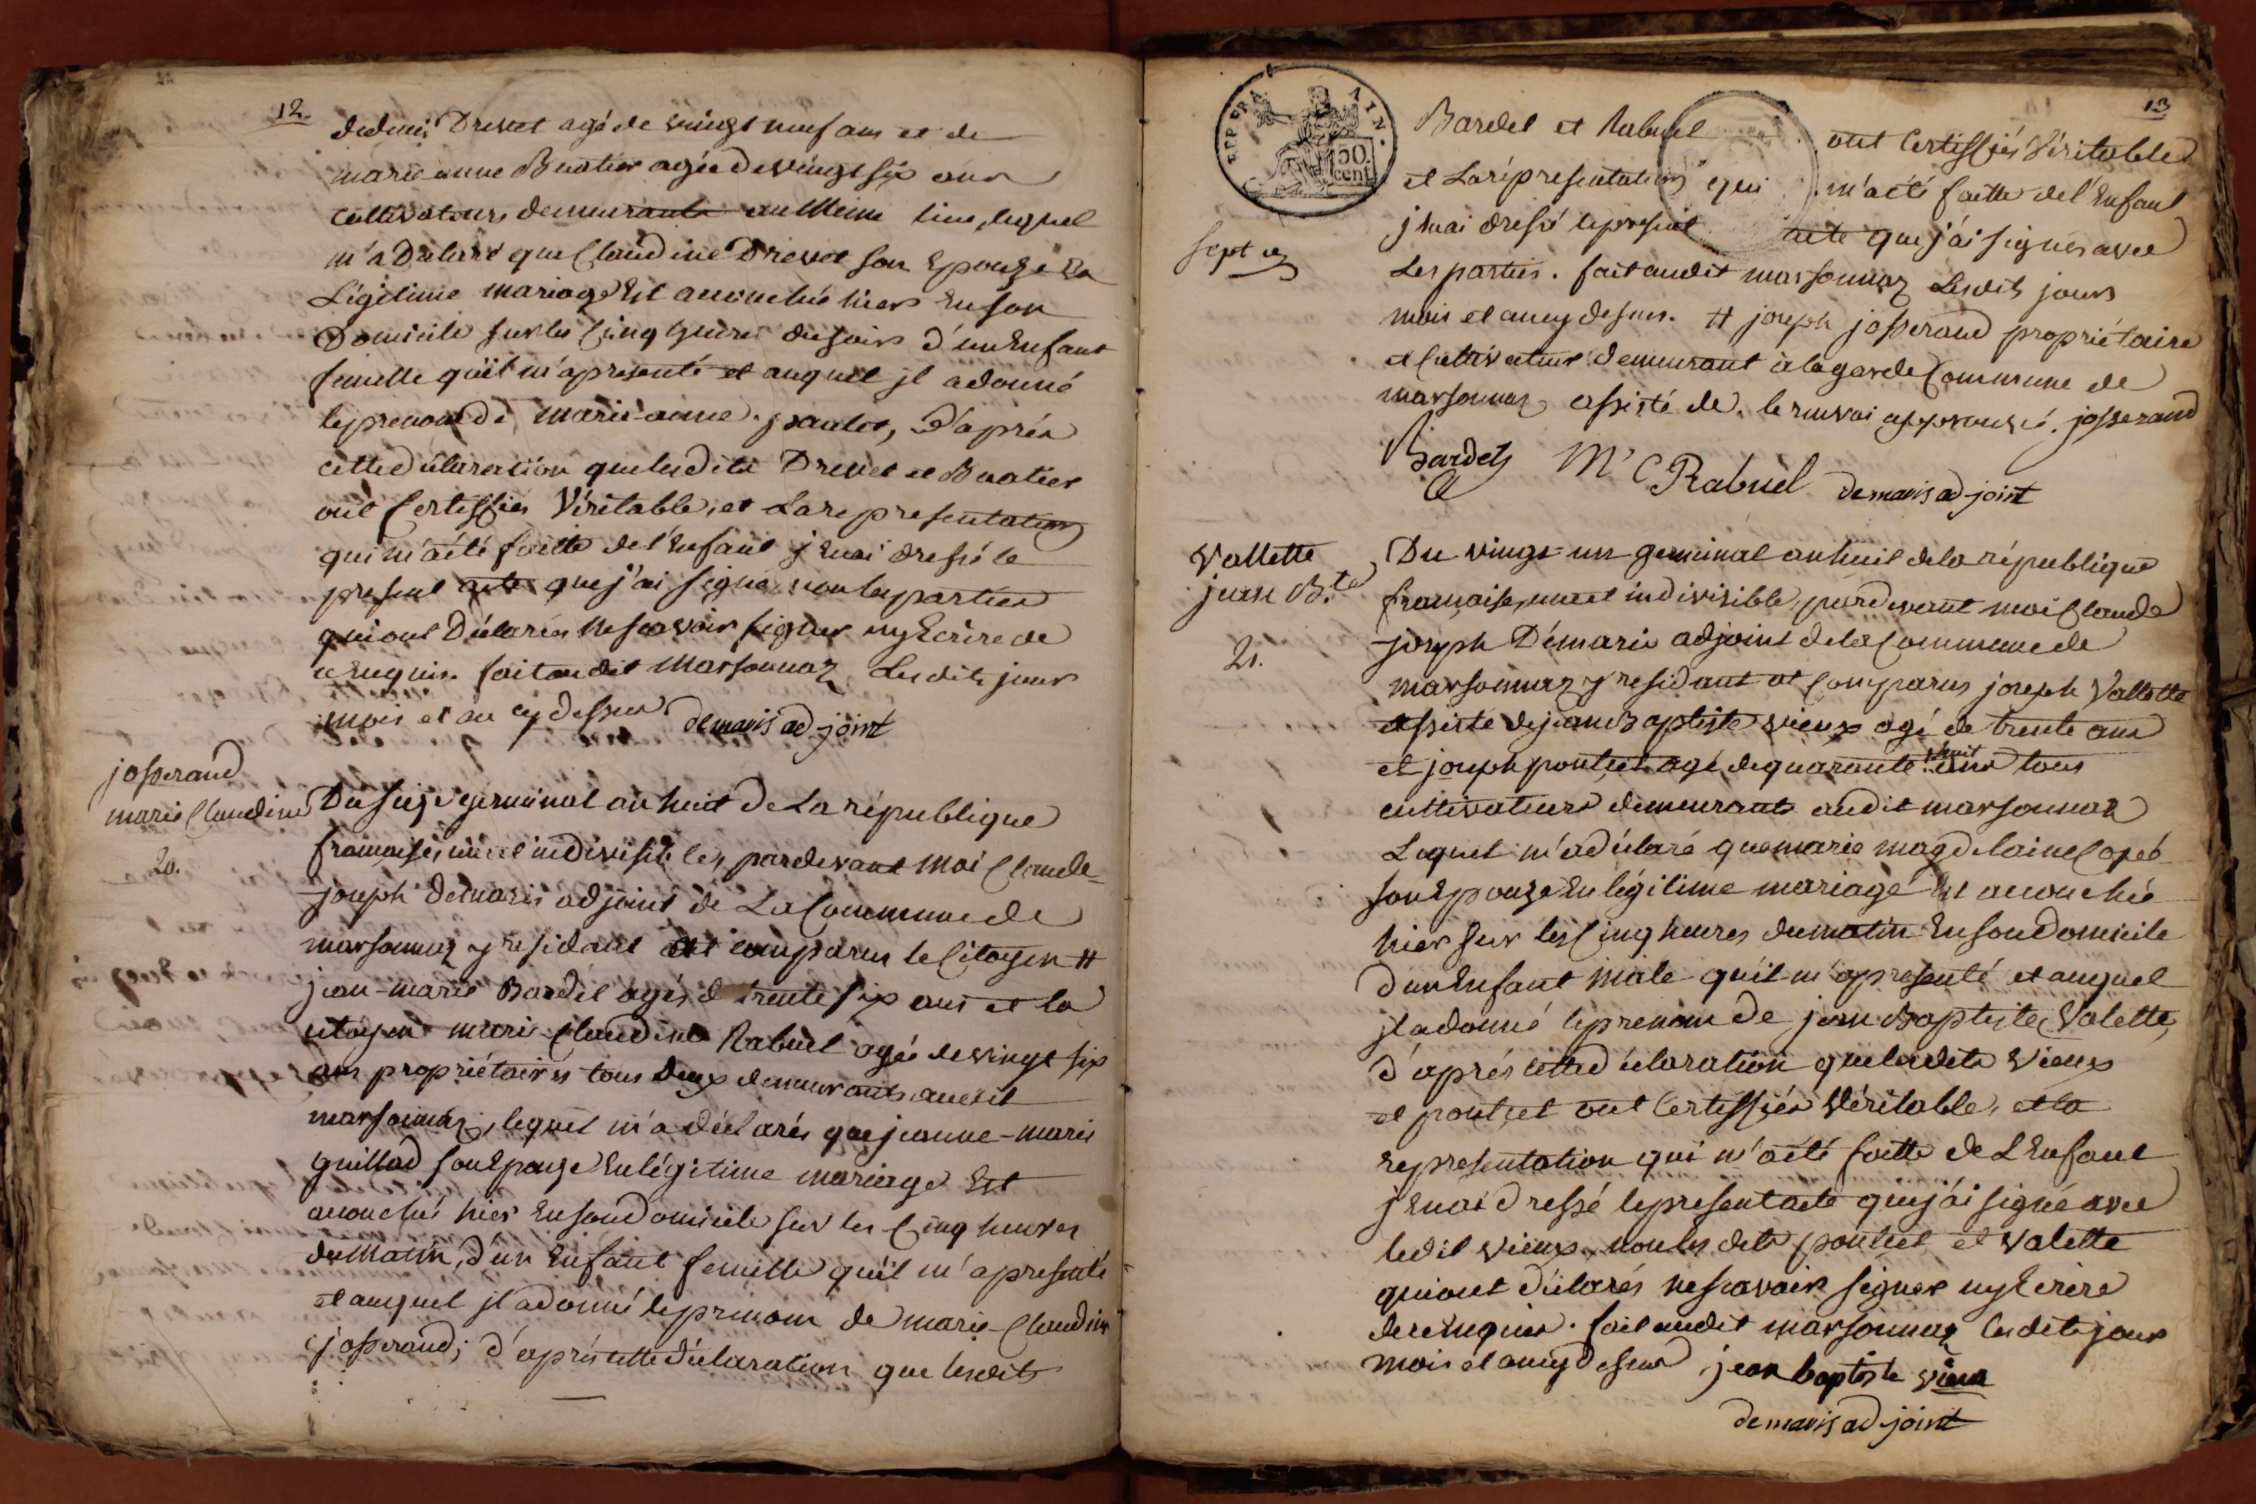 12.
dedenis Drevet agé de vingt neuf ans et de
marie anne Buatier agée de vingt six ans
cultivateurs demeurants au Meme lieu, lequel
m'a Déclaré que Claudine Drevet son Epouze En
Légitime mariage Est accouchée hiers En son
Domicile sur les Cinq heures du soir d'un Enfant
femelle qu'il m'a presenté et auquel il a donné
le prenom de marie-anne, D'après
cette déclaration que lesdits Drevet et Buatier
ont Certiffiés Véritable, et La representation
qui m'a été faitte de l'Enfant j'en ai dressé le
present acte que j'ai signé non les parties
qui ont Déclarés ne scavoir signer ny Ecrire de
ce enquis. fait audit Marsonnaz Lesdits jours
mois et an cy dessus. demaris ad-joint
josserand
marie Claudine
20.
Du seize germinal an huit de La république
françaises une et indivisibles, pardevant moi Claude-
joseph demaris adjoint de La Commune de
marsonnaz y residant est comparu le Citoyen #
jean-marie Bardel agés de trente six ans et la
citoyene marie Claudine Rabuel agée de vingt six
ans propriétaires tous deux demeurants audit
marsonnaz, lequel m'a déclarés que jeanne-marie
Guillod son Epouze En légitime mariage Est
accouchée hier En son domicile sur les Cinq heures
du Matin, d'un Enfant femelle qu'il m'a presenté
et auquel il a donné le prenom de marie-Claudine
josserand; d'après cette déclaration que lesdits
13
REP. FRA. AIN.
50.
cent.
sept
Bardel et Rabuel ont Certiffiés Véritable
et La répresentation qui m'a été faitte de l'Enfant
j'en ai dressé le present acte que j'ai signés avec
Les parties. fait audit marsonnaz Lesdits jours
mois et an cy dessus. # joseph josserand propriétaire
et Cultivateur demeurant à la garde Commune de
marsonnaz assisté de. le renvoi approuvé. josserand
Bardel M C Rabuel demaris ad-joint
Vallette
jean B.te
21.
Du vingt-un germinal an huit de la république
française, une et indivisible, pardevant moi Claude
joseph Démaris adjoint de la Commune de
marsonnaz y residant est Comparus joseph Vallette
assisté de jean Baptiste vieux agé de trente ans
et joseph pontet agé de quarante huit ans tous
cultivateurs demeurants audit marsonnaz
Lequel m'a déclaré que marie magdelaine
son Epouze En légitime mariage Est accouchée
hier sur les Cinq heures du matin En son domicile
d'un Enfant male qu'il m'a presenté et auquel
il a donné le prenom de jean Baptiste Valette,
d'après cette déclaration que lesdits vieux
et pontet ont Certiffiés Véritable, et la
representation qui m'a été faitte de L'Enfant
j'en ai dressé le present acte que j'ai signé avec
ledit vieux, non les dits pontet et valette
qui ont déclarés ne scavoir signer ny Ecrire
de ce enquis. fait audit marsonnaz lesdits jour
mois et an cy dessus jean baptiste vieux
demaris ad-joint